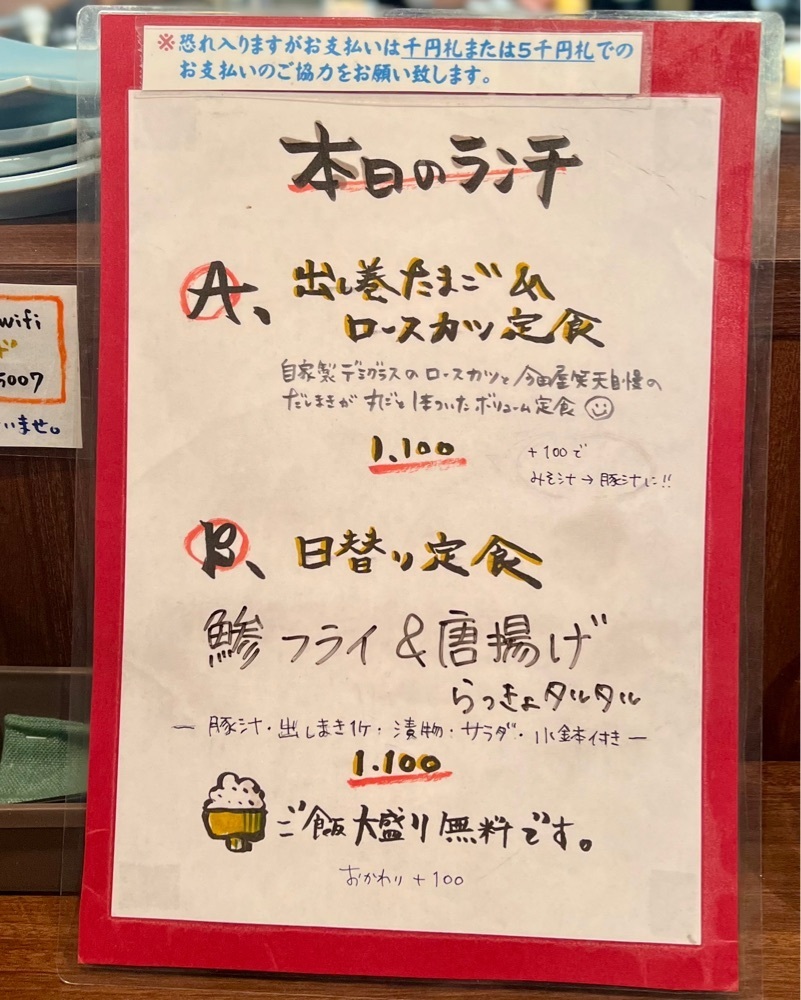 ※恐れ入りますがお支払いは千円札または5千円札での
お支払いのご協力をお願い致します。
本日のランチ
A、出し巻たまご&
ロースカツ定食
自家製デミグラスのロースカツと今田屋笑天自慢の
だしまきが丸ごと1本ついたボリューム定食
1.100
+100で
みそ汁→豚汁に!!
B、日替り定食
鯵フライ&唐揚げ
らっきょタルタル
ー豚汁・出しまき1ケ・漬物・サラダ・小鉢付きー
1.100
ご飯大盛り無料です。
おかわり+100
wifi
5007
いませ。